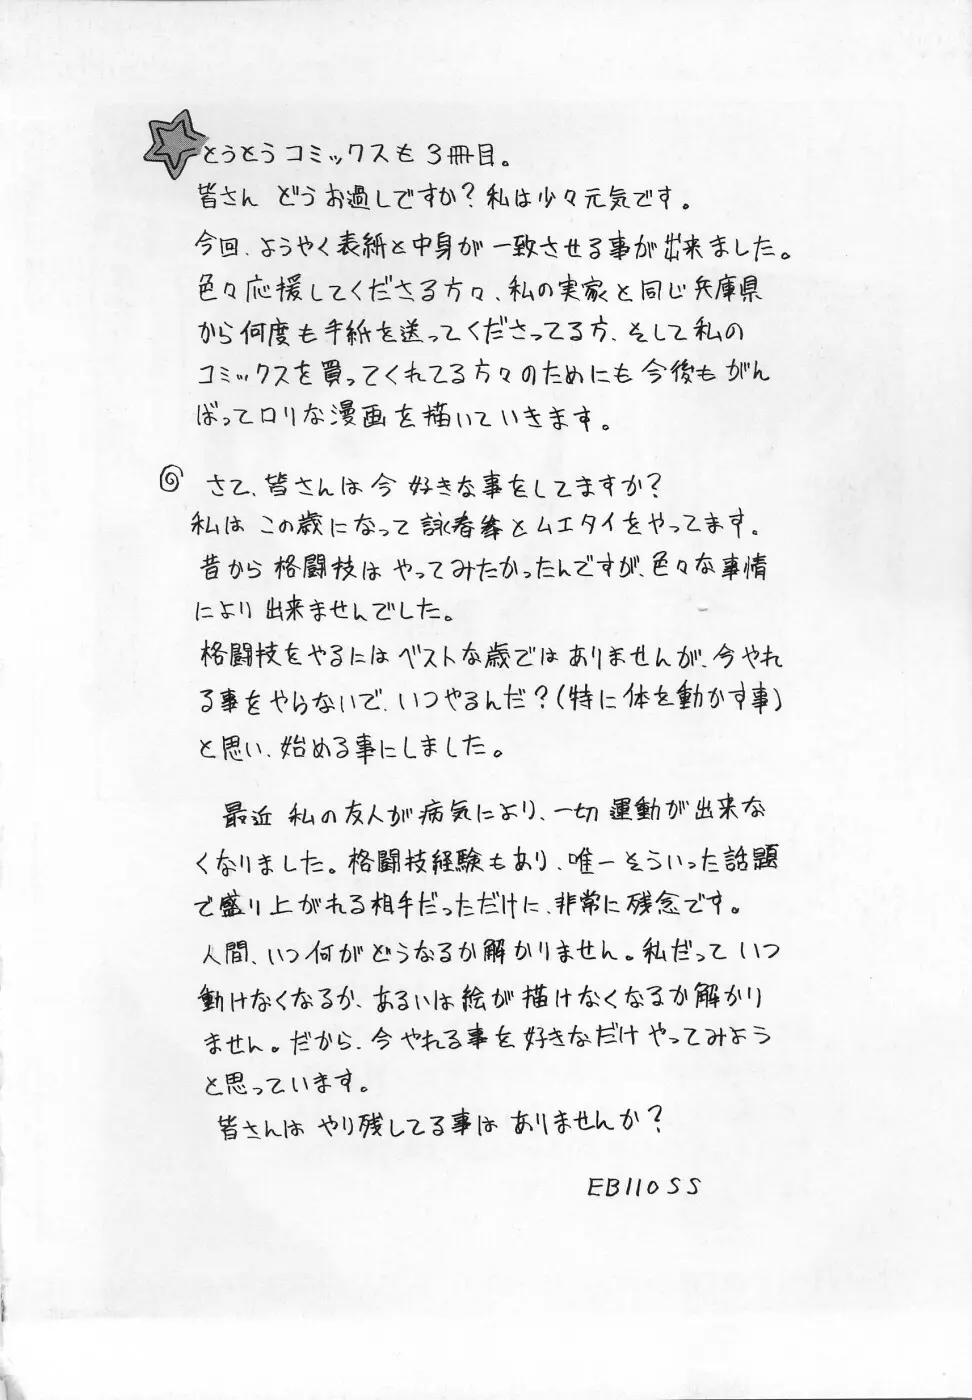 とうとうコミックスも3冊目。
皆さん どうお過しですか?私は少々元気です。
今回、ようやく表紙と中身が一致させる事が出来ました。
色々応援してくださる方々、私の実家と同じ兵庫県
から何度も手紙を送ってくださってる方、そして私の
コミックスを買ってくれてる方々のためにも今後もがん
ばってロリな漫画を描いていきます。
さて、皆さんは今 好きな事をしてますか?
私は この歳になって詠春拳とムエタイをやってます。
昔から格闘技は やってみたかったんですが、色々な事情
により出来ませんでした。
格闘技をやるにはベストな歳ではありませんが、今やれ
る事をやらないで、いつやるんだ?(特に体を動かす事)
と思い、始める事にしました。
最近 私の友人が病気により、一切運動が出来な
くなりました。格闘技経験もあり、唯一そういった話題
で盛り上がれる相手だっただけに、非常に残念です。
人間、いつ何がどうなるか解かりません。私だって いつ
動けなくなるか、あるいは絵が描けなくなるか解かり
ません。だから、今やれる事を好きなだけやってみよう
と思っています。
皆さんは やり残してる事は ありませんか?
EB110SS